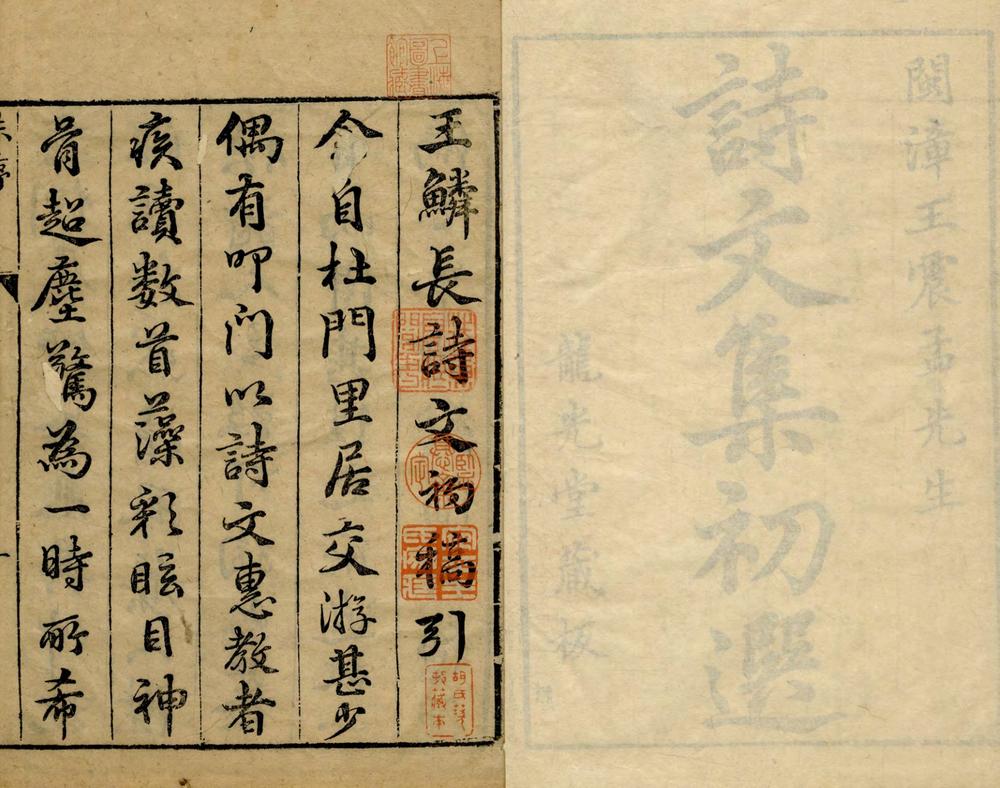 閩漳王震孟先生
詩文集初選
龍光堂藏板
王鱗長詩文初稿引
余自杜門里居交游甚少
偶有叩门以詩文惠教者
疾讀数首藻彩眩目神
骨超塵驚為一時所希